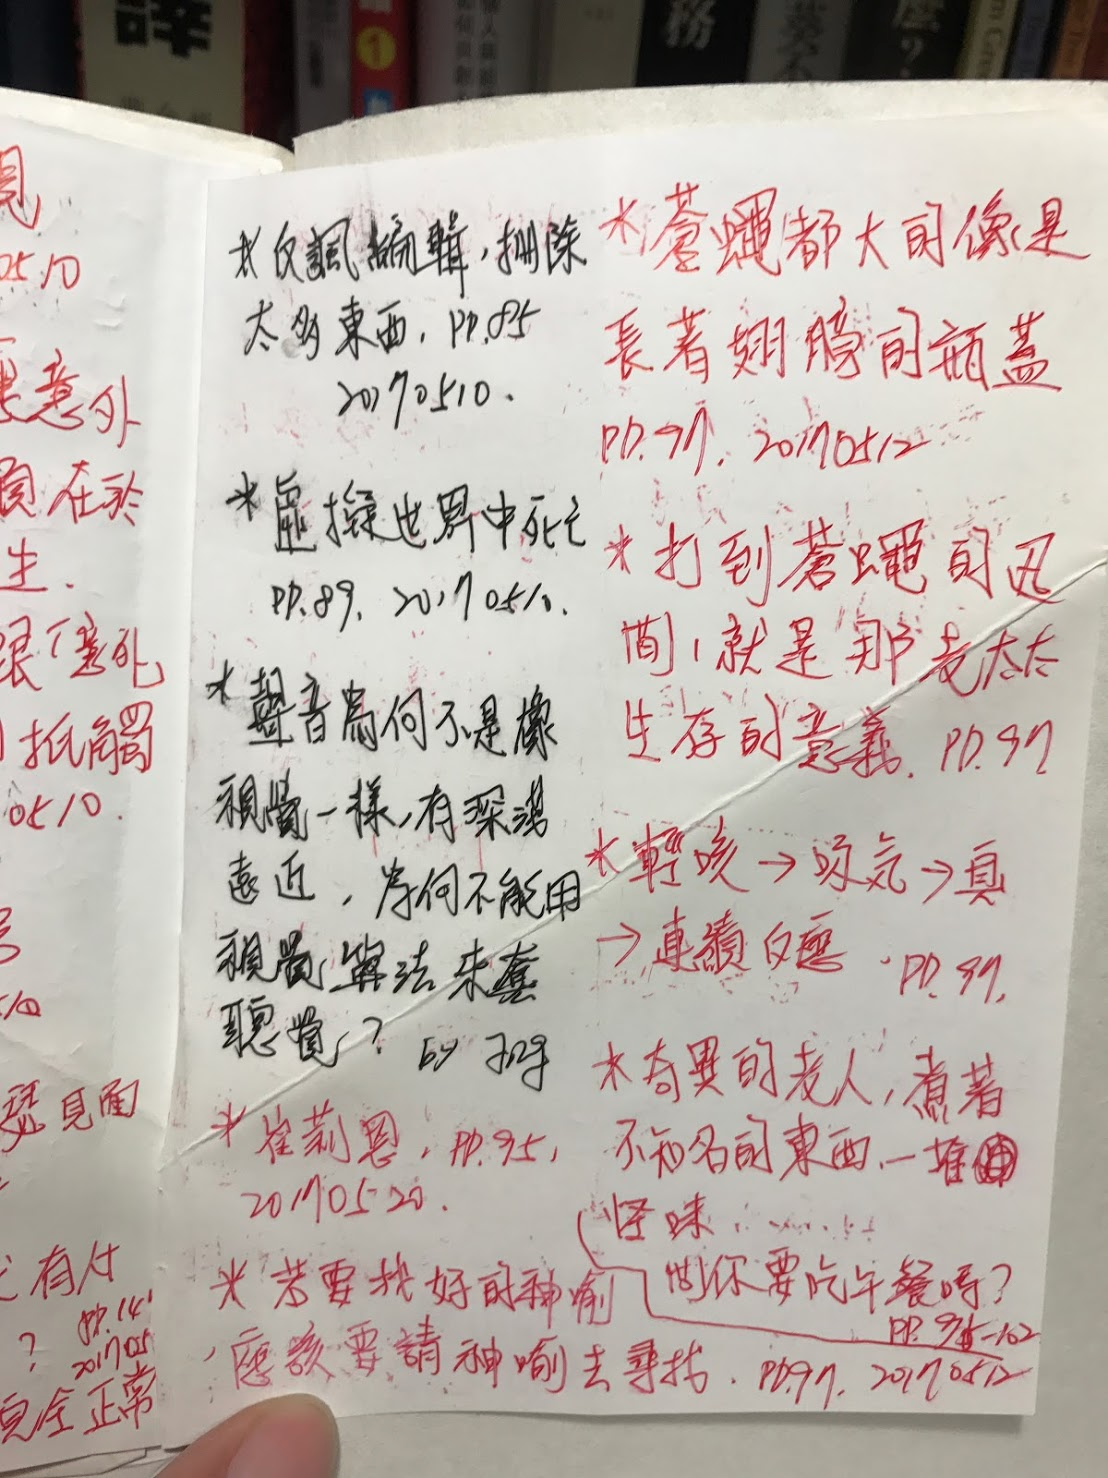 見
0510
意外
在於
生.
跟「意外」
抵觸
0510.
見面
有什
? PP.14
201705
完全正常
*反諷編輯,刪除
太多東西. PP.85
20170510.
*虛擬世界中死亡
PP.89. 20170510.
*聲音為何不是像
視覺一樣,有深淺
遠近,為何不能用
視覺算法來套
聽覺? by
*崔莉恩. PP.95,
20170520.
*若要找好的神喻
應該要請神喻去尋找. PP.97. 20170512
*蒼蠅都大的像是
長著翅膀的瓶蓋
PP.97. 20170512
*打到蒼蠅的瞬
間,就是那老太太
生存的意義. PP.97
*輕咳→吸気→真
→連續反應. PP.97.
*奇異的老人,煮著
不知名的東西.一堆
怪味.
問你要吃午餐嗎?
PP.95-102
務
1